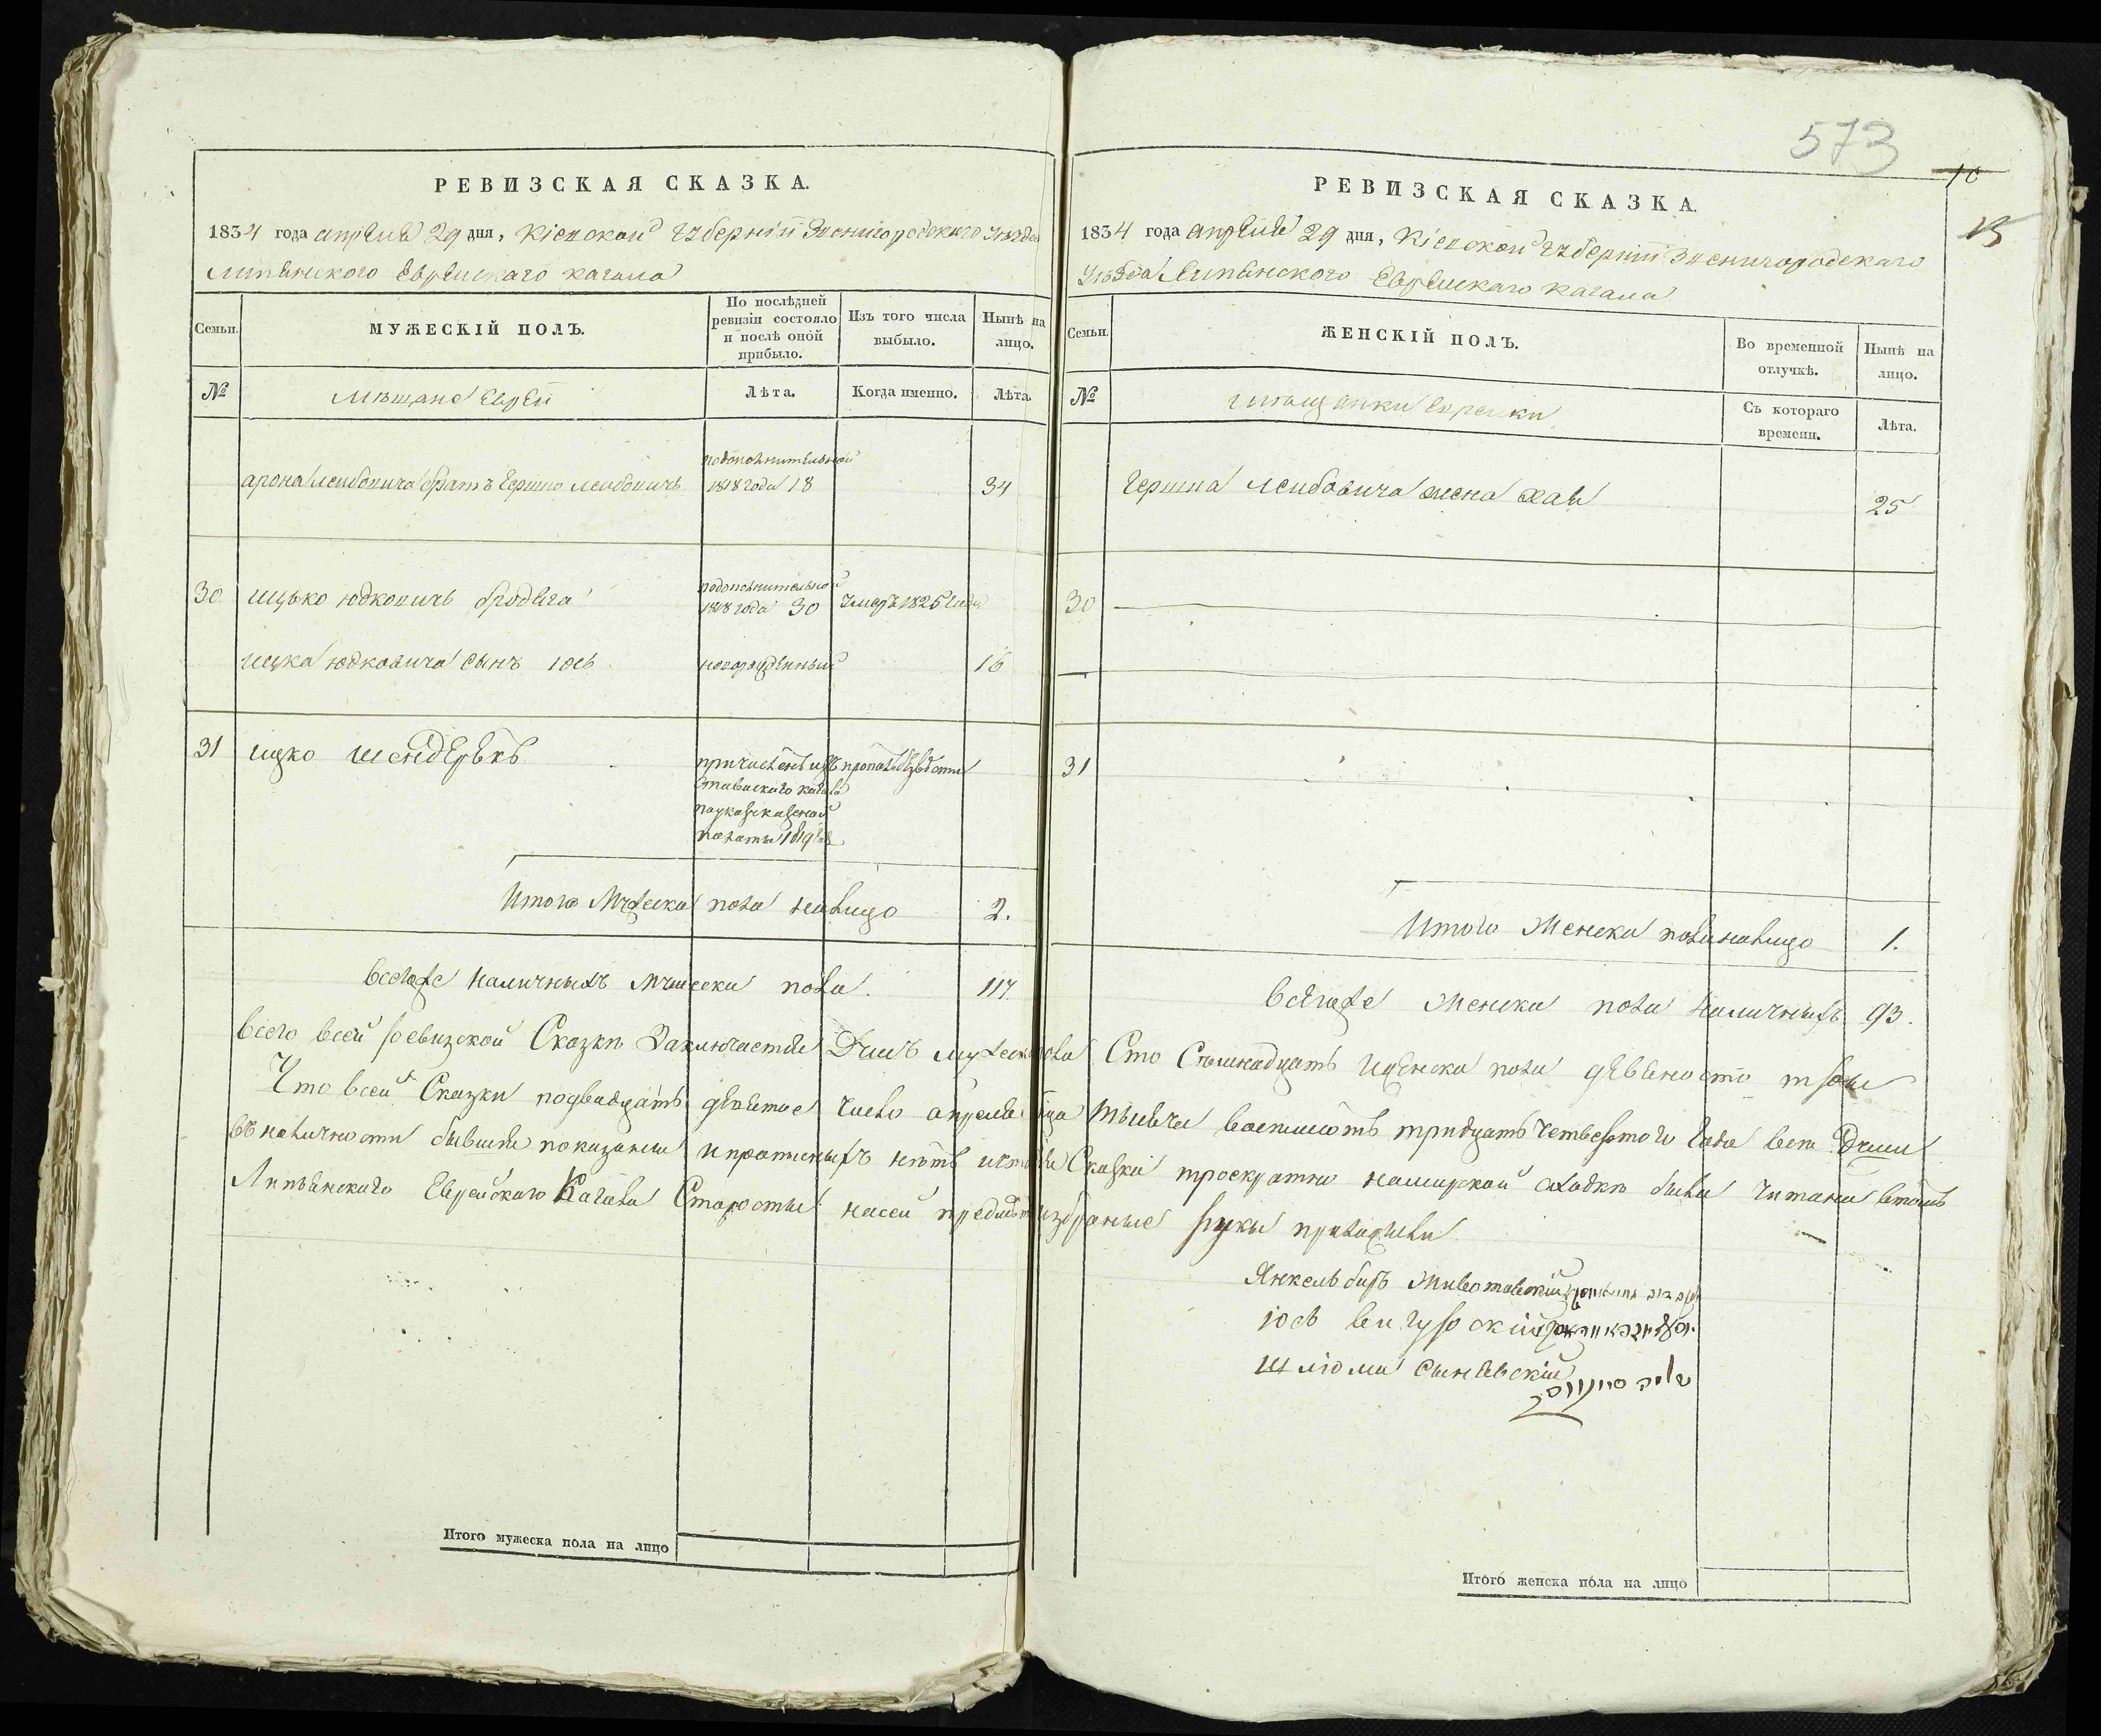 РЕВИЗСКАЯ СКАЗКА.
1834 года апреля 29 дня, Кіевской губерніи Звенигородского уезда
Липянского Еврейскаго кагала
Семьи.
МУЖЕСКІЙ ПОЛЪ.
По послѣдней ревизіи состояло и послѣ оной прибыло.
Изъ того числа выбыло.
Нынѣ на лицо.
№
Мѣщане Евреи
Лѣта.
Когда именно.
Лѣта.
арона Лейбовича братъ Гершко Лейбовичъ
подополнительной
1818 года 18
34
30
ицько юдковичъ бродяга
подополнительной
1818 года 30
умеръ 1825 года
ицка юдковича сынъ іось
новорожденный
16
31
ицко шендерѣкъ
причисленъ изъ
кагала
палаты 1819
пропалъ безвести
Итого Мужеска пола налицо 2.
всегоже наличныхъ мужеска пола. 117.
573
10
15
РЕВИЗСКАЯ СКАЗКА.
1834 года апреля 29 дня, Кіевской губерніи Звенигородскаго
уезда Липянского Еврейскаго кагала
Семьи.
ЖЕНСКІЙ ПОЛЪ.
Во временной отлучкѣ.
Нынѣ на лицо.
№
мѣщанки еврейки
Съ котораго времени.
Лѣта.
Гершка Лейбовича жена хая
25
30
31
Итого Женска пола налицо 1.
всегоже женска пола наличныхъ 93.
всего всей ревизской Сказки Заключается Душъ мужеска пола Сто Семнадцать иженска пола девяносто три
Что всей Сказки подвадцать девятое число апреля тысяча восемсотъ тридцать четвертого года все Души
въналичности бывшия показаны ипрописныхъ нетъ Сказка троекратно намирской сходке была читана втомъ
Липянскаго Еврейского Кагала Старосты избраные руки приложили
Янкель биръ Животовскій
іось вигуровскій
шліома Синявскій
Итого мужеска пола на лицо
Итого женска пола на лицо